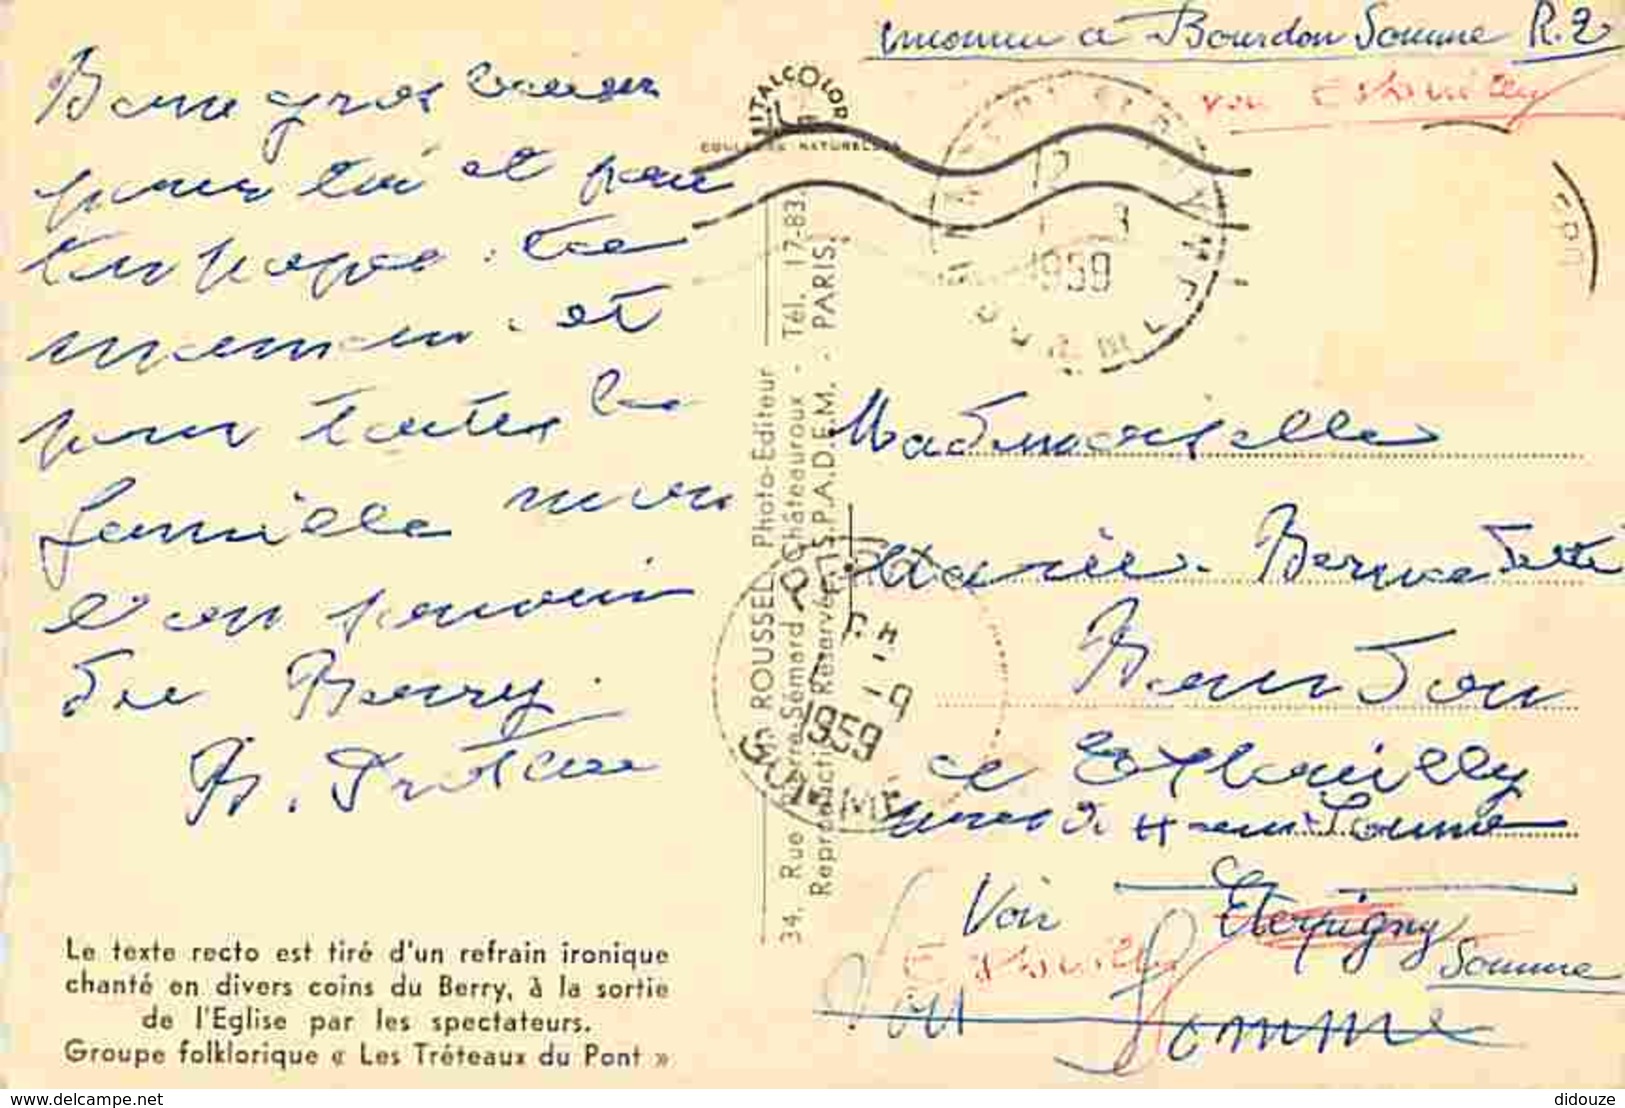 inconnu à Bourdon Somme R.2
voir Estouilly
Bons gros baisers
pour toi et pour
ton papa. ta
maman. et
pour toutes la
famille mon
bon souvenir
du Berry.
VITALCOLOR
COULEURS NATURELLES
12
1959
Mademoiselle
Marie-Bernadette
Bourdon
à Estouilly
près de Ham Somme
Voir Eterpigny
Somme
Estouilly
Voir Somme
1959
SOMME
ROUSSEL Photo-Editeur
34, Rue Pierre-Sémard - Châteauroux - Tél. 17-83.
Reproduction Réservée S.P.A.D.E.M. - PARIS.
Le texte recto est tiré d'un refrain ironique
chanté en divers coins du Berry, à la sortie
de l'Eglise par les spectateurs.
Groupe folklorique « Les Tréteaux du Pont »
delcampe.net
didouze